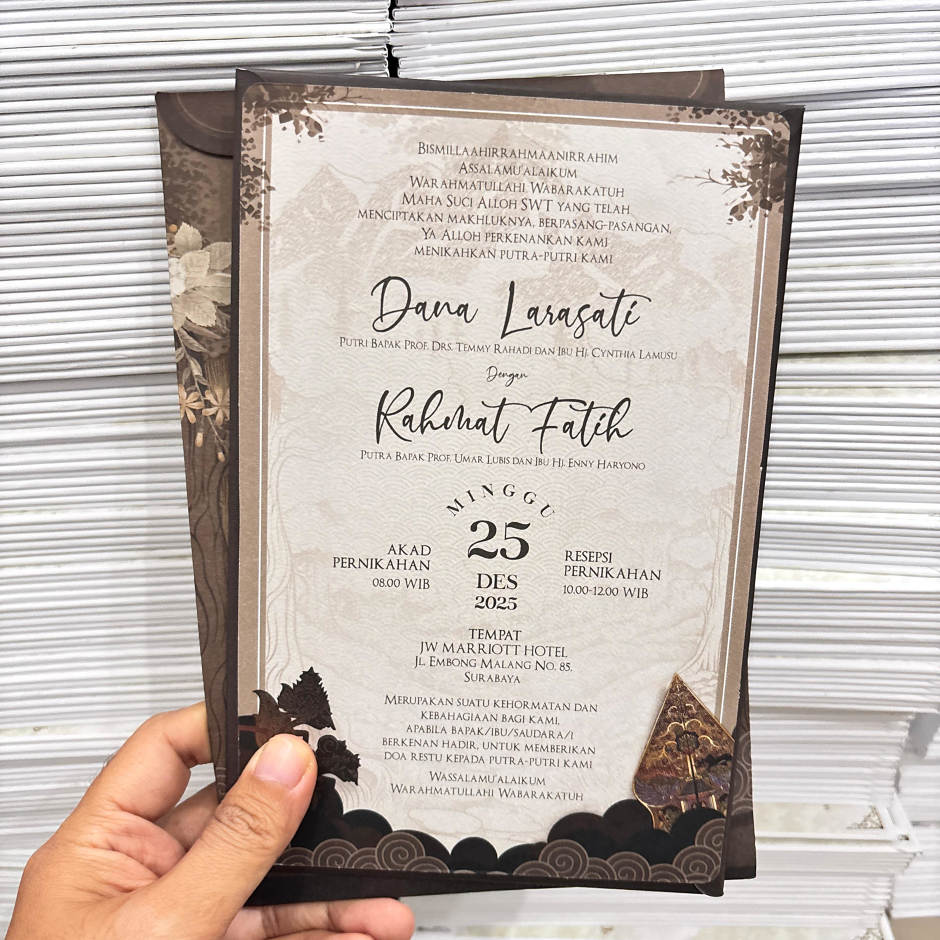 BISMILLAAHIRRAHMAANIRRAHIM
ASSALAMU'ALAIKUM
WARAHMATULLAHI WABARAKATUH
MAHA SUCI ALLOH SWT YANG TELAH
MENCIPTAKAN MAKHLUKNYA, BERPASANG-PASANGAN,
YA ALLOH PERKENANKAN KAMI
MENIKAHKAN PUTRA-PUTRI KAMI
Dana Larasati
PUTRI BAPAK PROF. DRS. TEMMY RAHADI DAN IBU HJ. CYNTHIA LAMUSU
Dengan
Rahmat Fatih
PUTRA BAPAK PROF. UMAR LUBIS DAN IBU HJ. ENNY HARYONO
MINGGU
25
DES
2025
AKAD
PERNIKAHAN
08.00 WIB
RESEPSI
PERNIKAHAN
10.00-12.00 WIB
TEMPAT
JW MARRIOTT HOTEL
JL. EMBONG MALANG NO. 85,
SURABAYA
MERUPAKAN SUATU KEHORMATAN DAN
KEBAHAGIAAN BAGI KAMI,
APABILA BAPAK/IBU/SAUDARA/I
BERKENAN HADIR, UNTUK MEMBERIKAN
DOA RESTU KEPADA PUTRA-PUTRI KAMI
WASSALAMU'ALAIKUM
WARAHMATULLAHI WABARAKATUH